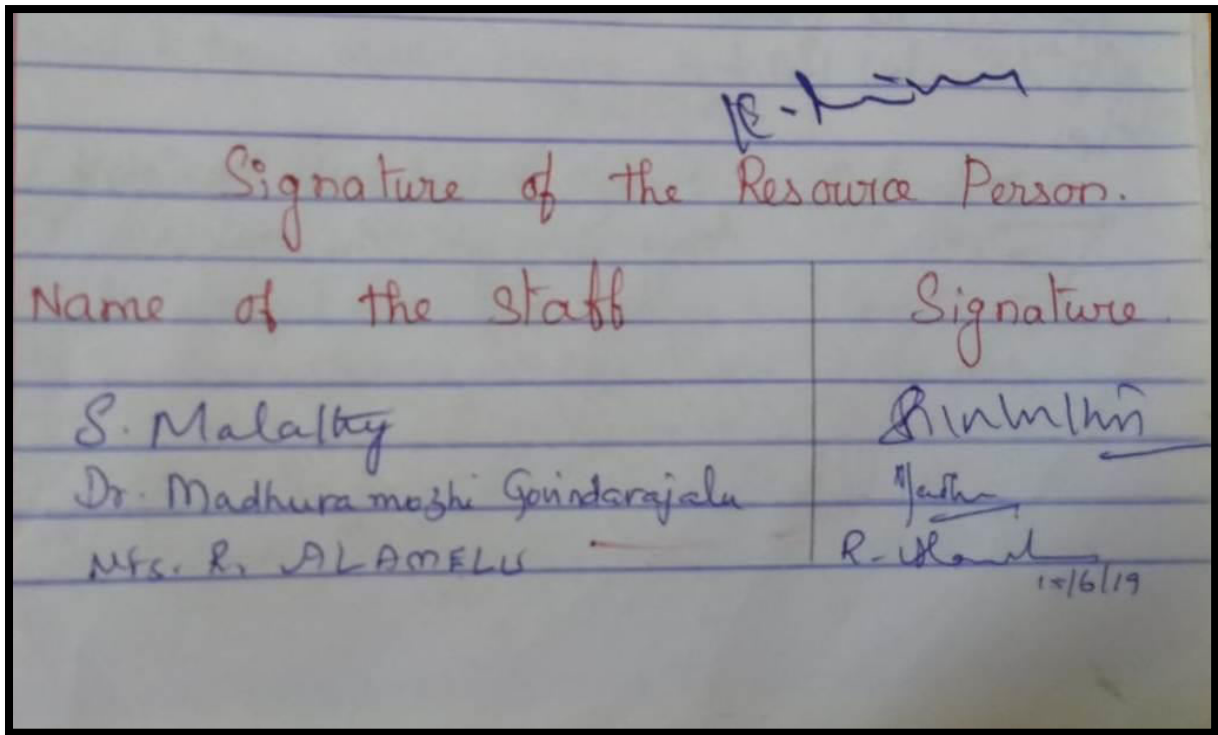 Signature of the Resource Person.
Name of the Staff Signature
S. Malathy
Dr. Madhuramozhi Govindarajalu
Mrs. R. ALAMELU R.
/6/19